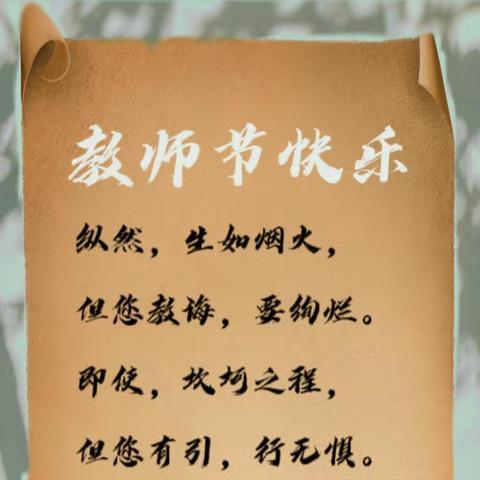 教师节快乐
纵然，生如烟火，
但您教诲，要绚烂。
即使，坎坷之程，
但您有引，行无惧。